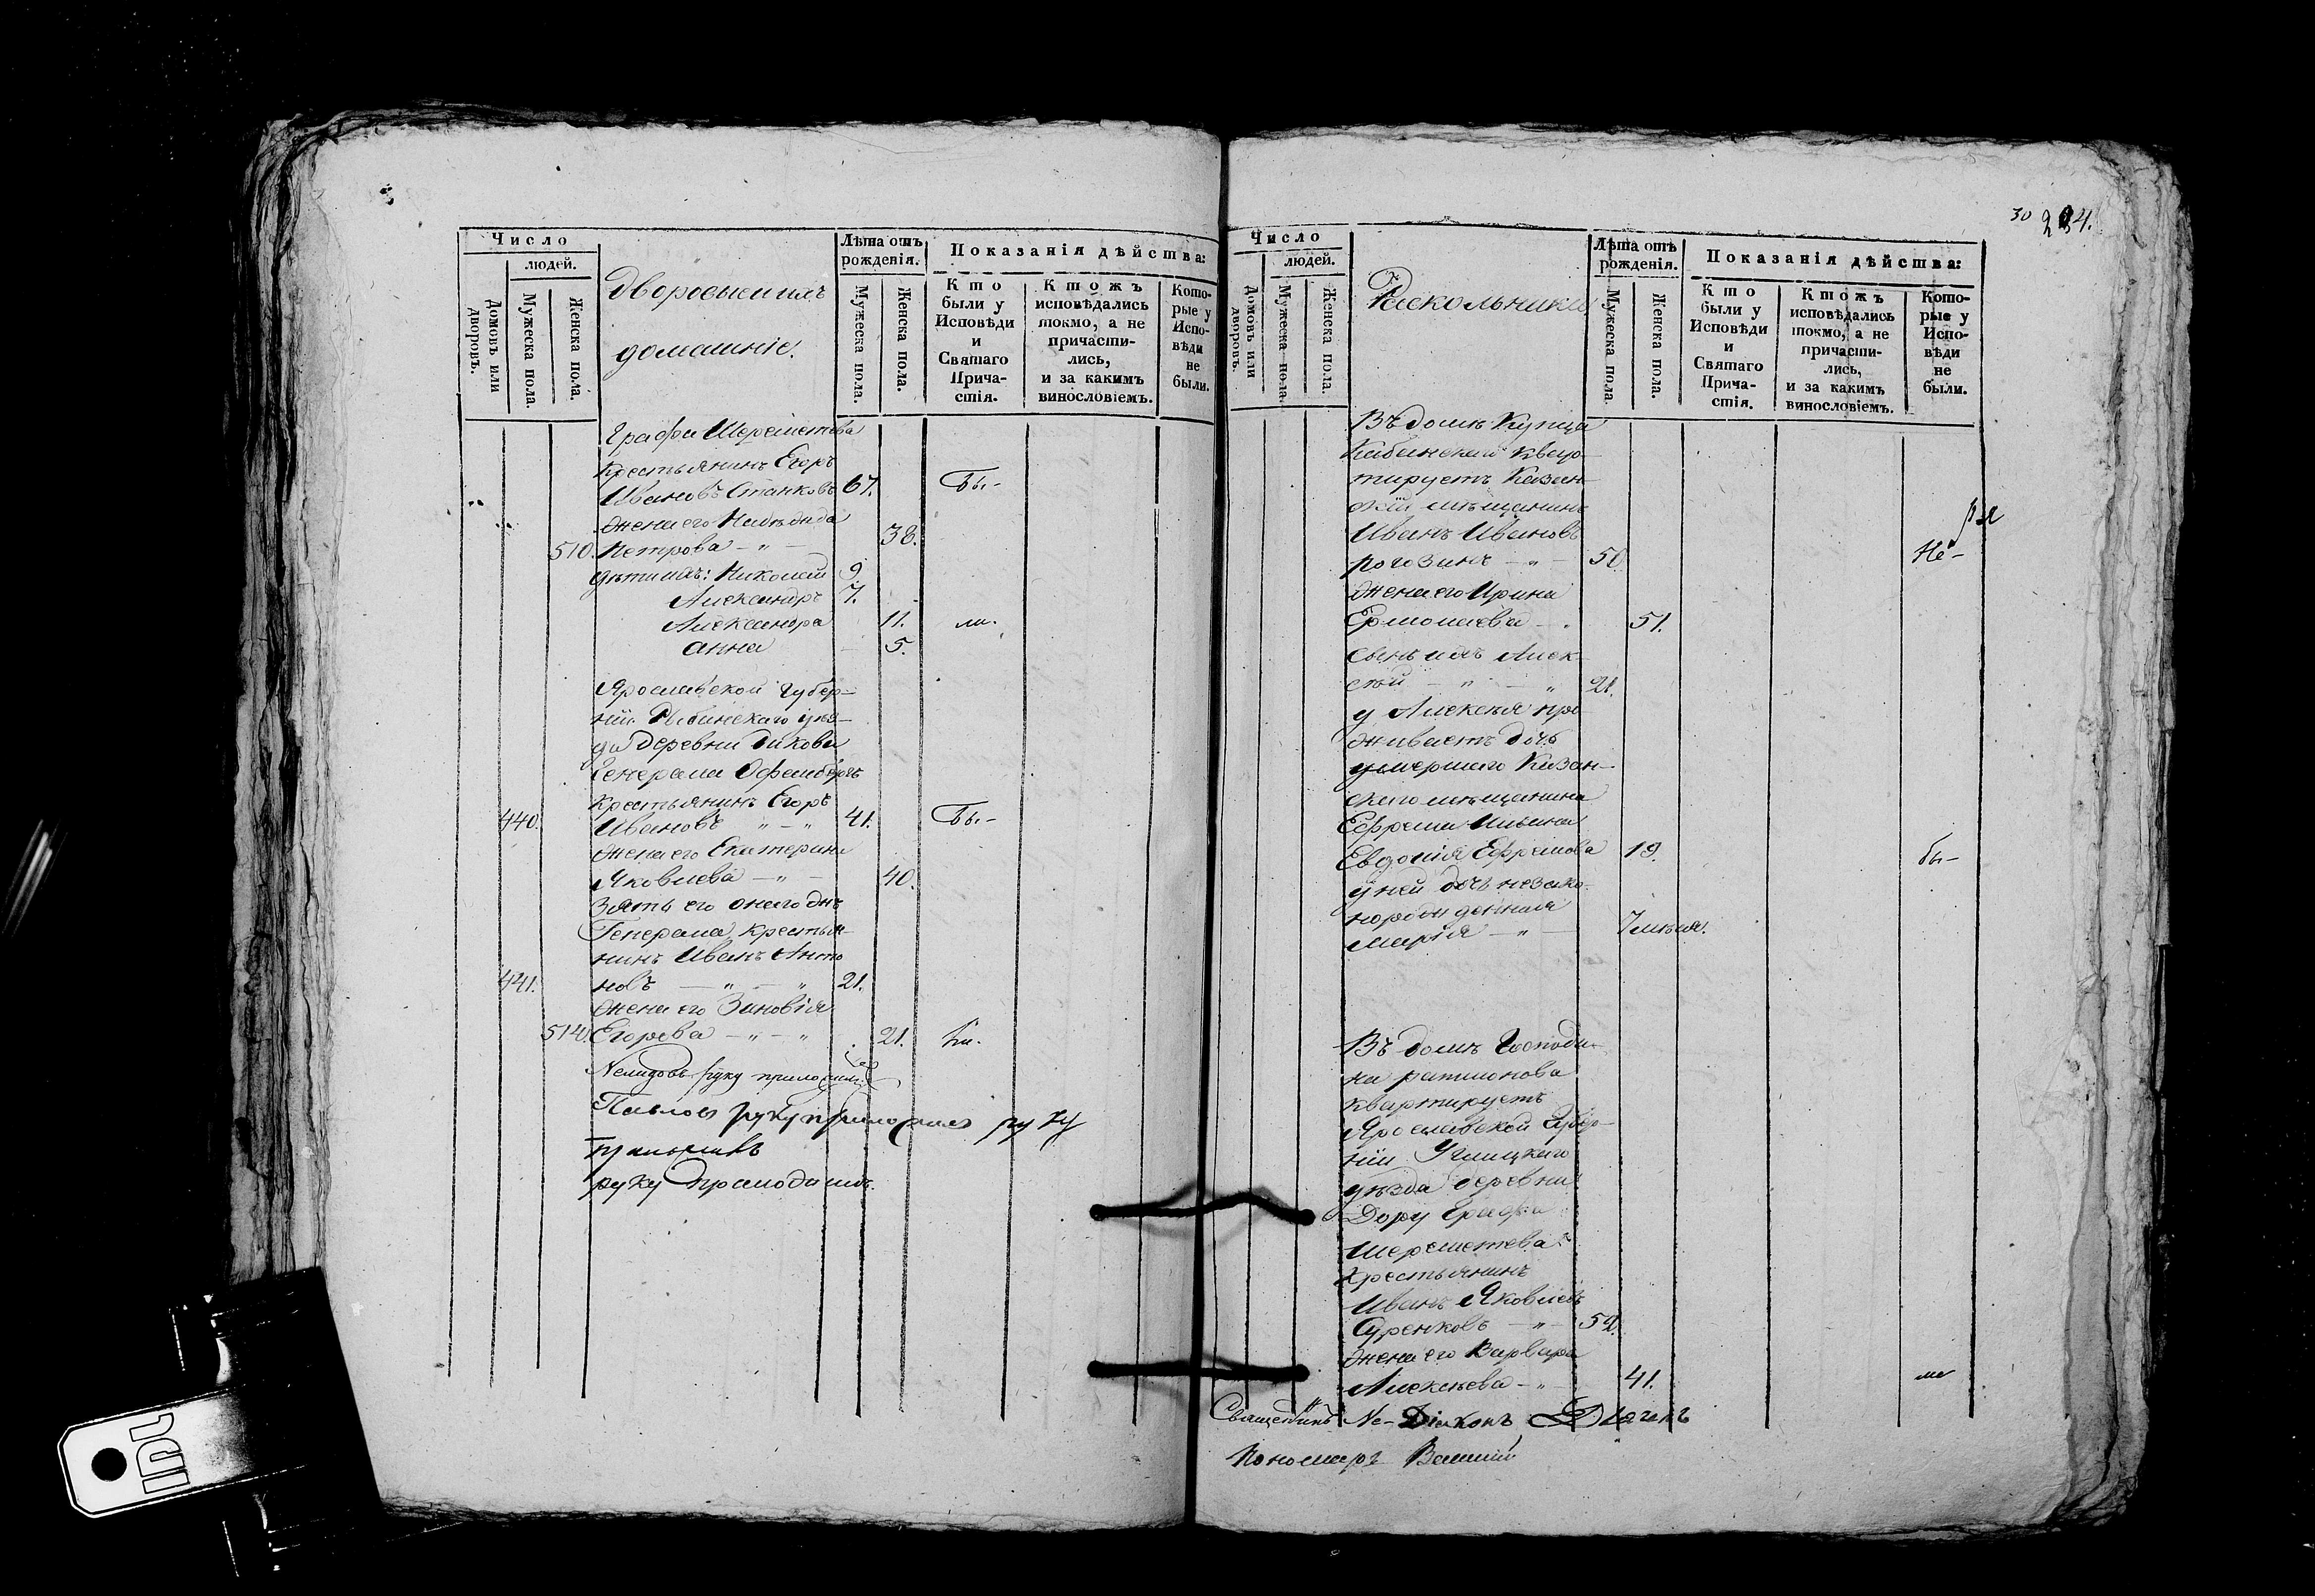 Число
людей.
Домовъ или дворовъ.
Мужеска пола.
Женска пола.
Дворовые и ихъ
домашніе.
Лѣта отъ рожденія.
Мужеска пола.
Женска пола.
Показанія дѣйства:
Кто были у Исповѣди и Святаго Причастія.
Ктожъ исповѣдались токмо, а не причастились, и за какимъ винословіемъ.
Которые у Исповѣди не были.
Графа Шереметева
крестьянинъ Егоръ
Ивановъ Станковъ 67. Бы-
жена его Надежда
510. Петрова - " - 38.
дѣти ихъ: Николай 9.
Александръ 7.
Александра 11. ли.
Анна 5.
Ярославской губер-
ніи Рыбинскаго уѣз-
да деревни Дикова
Генерала
крестьянинъ Егоръ
440. Ивановъ " - " 41. Бы-
жена его Екатерина
Яковлева - " - 40.
Зять его онаго днъ
Генерала крестья-
нинъ Иванъ Анто
441. новъ - " - " 21.
жена его Зиновія
514. Егорова - " - " 21. ли.
руку приложилъ
Павловъ руку приложилъ руку
руку приложилъ
30 234.
Число
людей.
Домовъ или дворовъ.
Мужеска пола.
Женска пола.
Раскольники
Лѣта отъ рожденія.
Мужеска пола.
Женска пола.
Показанія дѣйства:
Кто были у Исповѣди и Святаго Причастія.
Ктожъ исповѣдались токмо, а не причастились, и за какимъ винословіемъ.
Которые у Исповѣди не были.
Въ домѣ Купца
квар-
тируетъ Казан-
скій мѣщанинъ
Иванъ Ивановъ
рогозинъ - " - 50 Не-
жена его Ирина
Ермолаева - . 51.
сынъ ихъ Алек-
сѣй - " - " 21.
у Алексѣя про
живаетъ дочь
умершаго Казан-
скаго мѣщанина
Ефрема Ильина
Евдокія Ефремова 19. бы-
у ней дочь незако-
норожденная
Марія - " - 7 мѣсяц.
Въ домѣ Господи-
на ратионова
квартируетъ
Ярославской Губер-
ніи Углицкаго
уѣзда деревни
Дору Графа
шереметева
крестьянинъ
Иванъ Яковлевъ
Суренковъ - " - 52.
жена его Варвара
Алексѣева - " - 41. ли
Священникъ Діаконъ Дьячекъ
Пономарь Василій